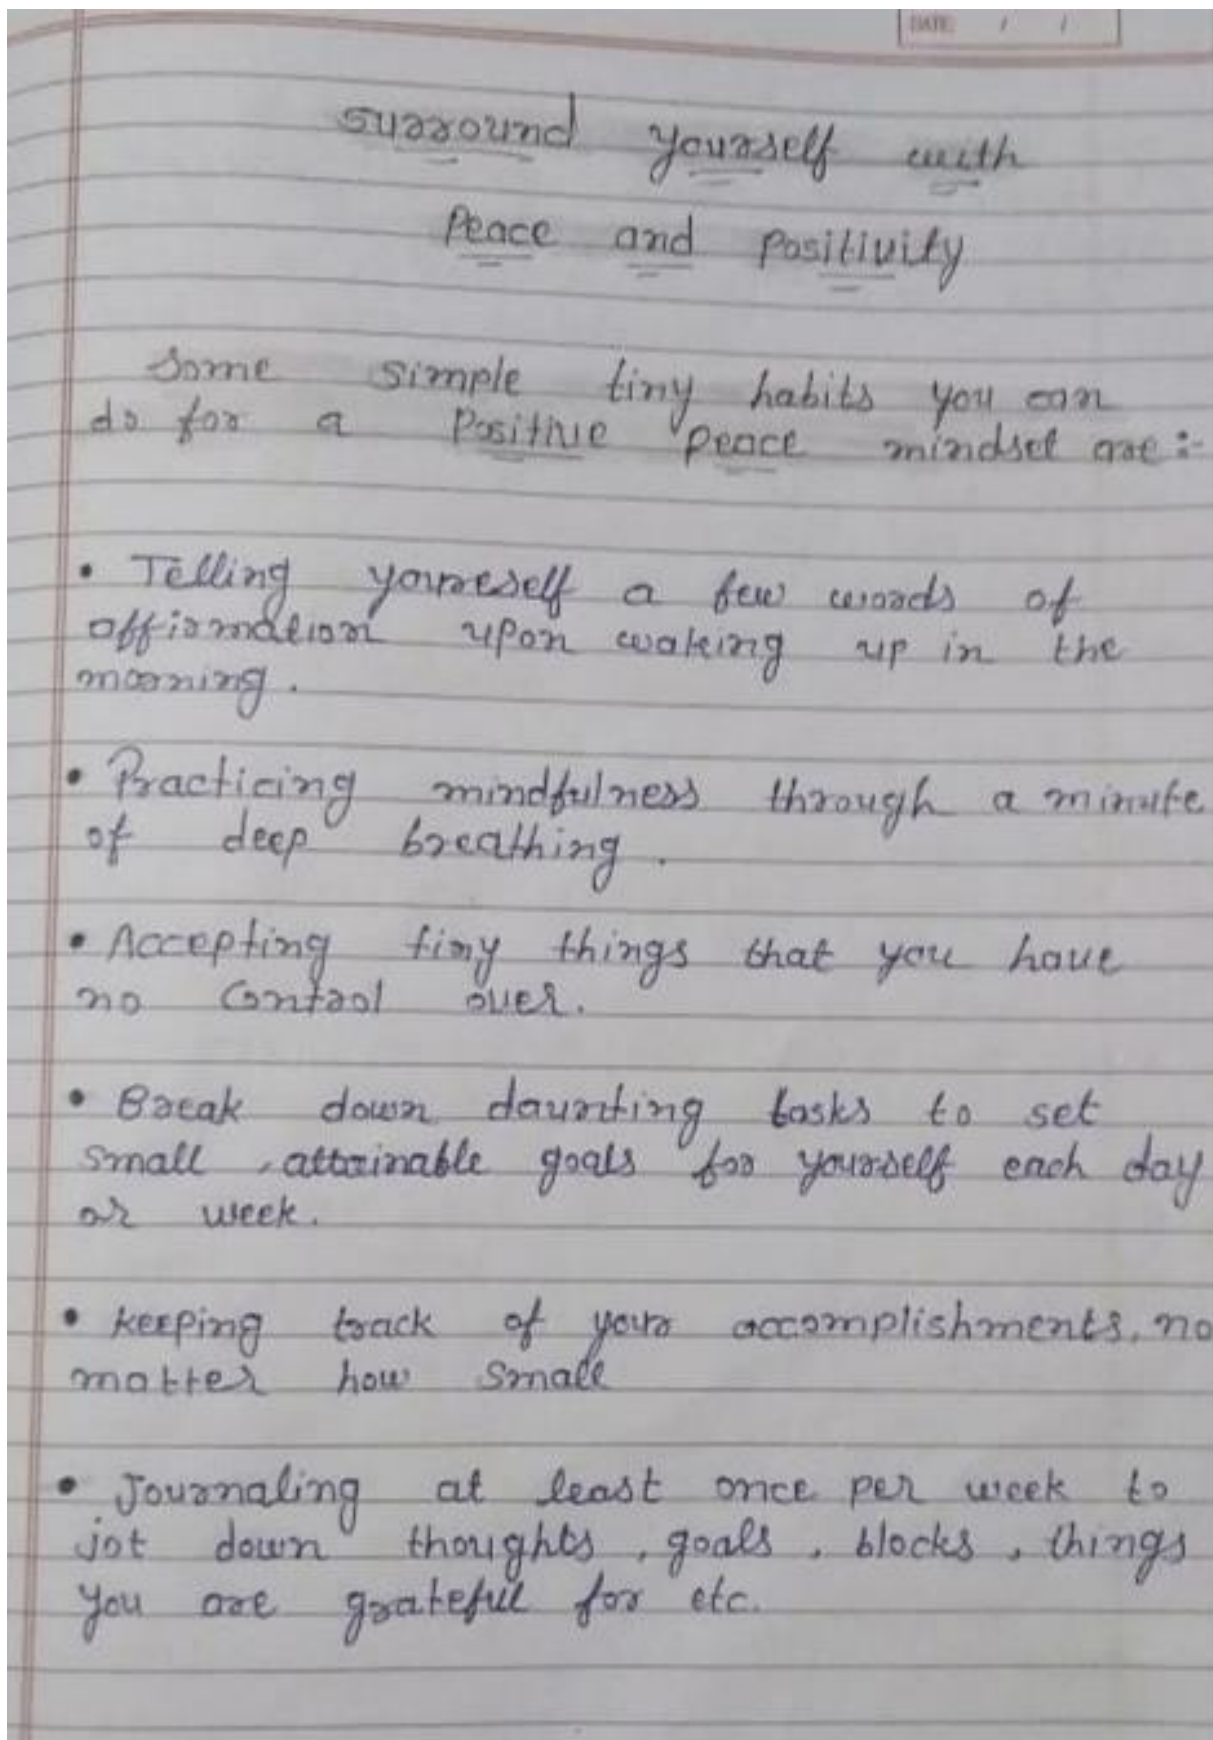 DATE: / /
Surround yourself with
Peace and Positivity
Some simple tiny habits you can
do for a Positive peace mindset are :-
• Telling youreself a few words of
affirmation upon waking up in the
morning.
• Practicing mindfulness through a minute
of deep breathing.
• Accepting tiny things that you have
no Control over.
• Break down daunting tasks to set
small, attainable goals for yourself each day
or week.
• keeping track of your accomplishments, no
matter how small
• Journaling at least once per week to
jot down thoughts, goals, blocks, things
you are grateful for etc.